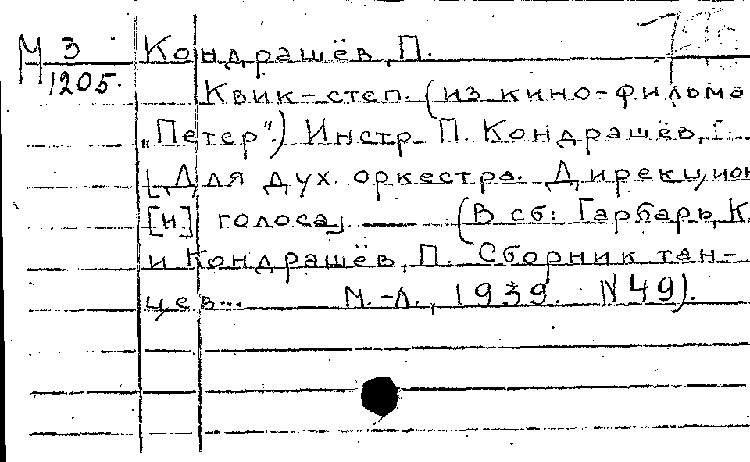 М 3 Кондрашёв, П.
1205.
Квик-степ. (из кино-фильма
„Петер".) Инстр. П. Кондрашёв,
[Для дух. оркестра. Дирекцион
[н] голоса] — (В сб: Гарбарь, К.
и Кондрашёв, П. Сборник тан-
цев... М.-Л., 1939. N 49).